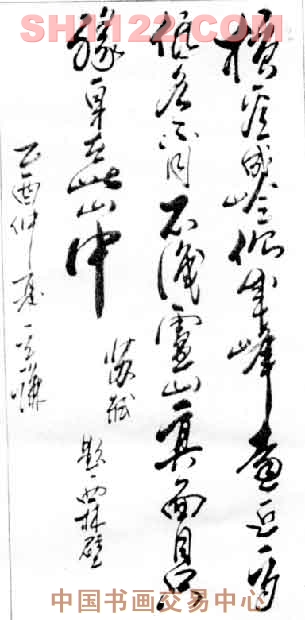 SH1122.COM
橫看成嶺側成峰遠近高
低各不同不識廬山真面目只
緣身在此山中 蘇軾 題西林壁
乙酉仲夏
中国书画交易中心